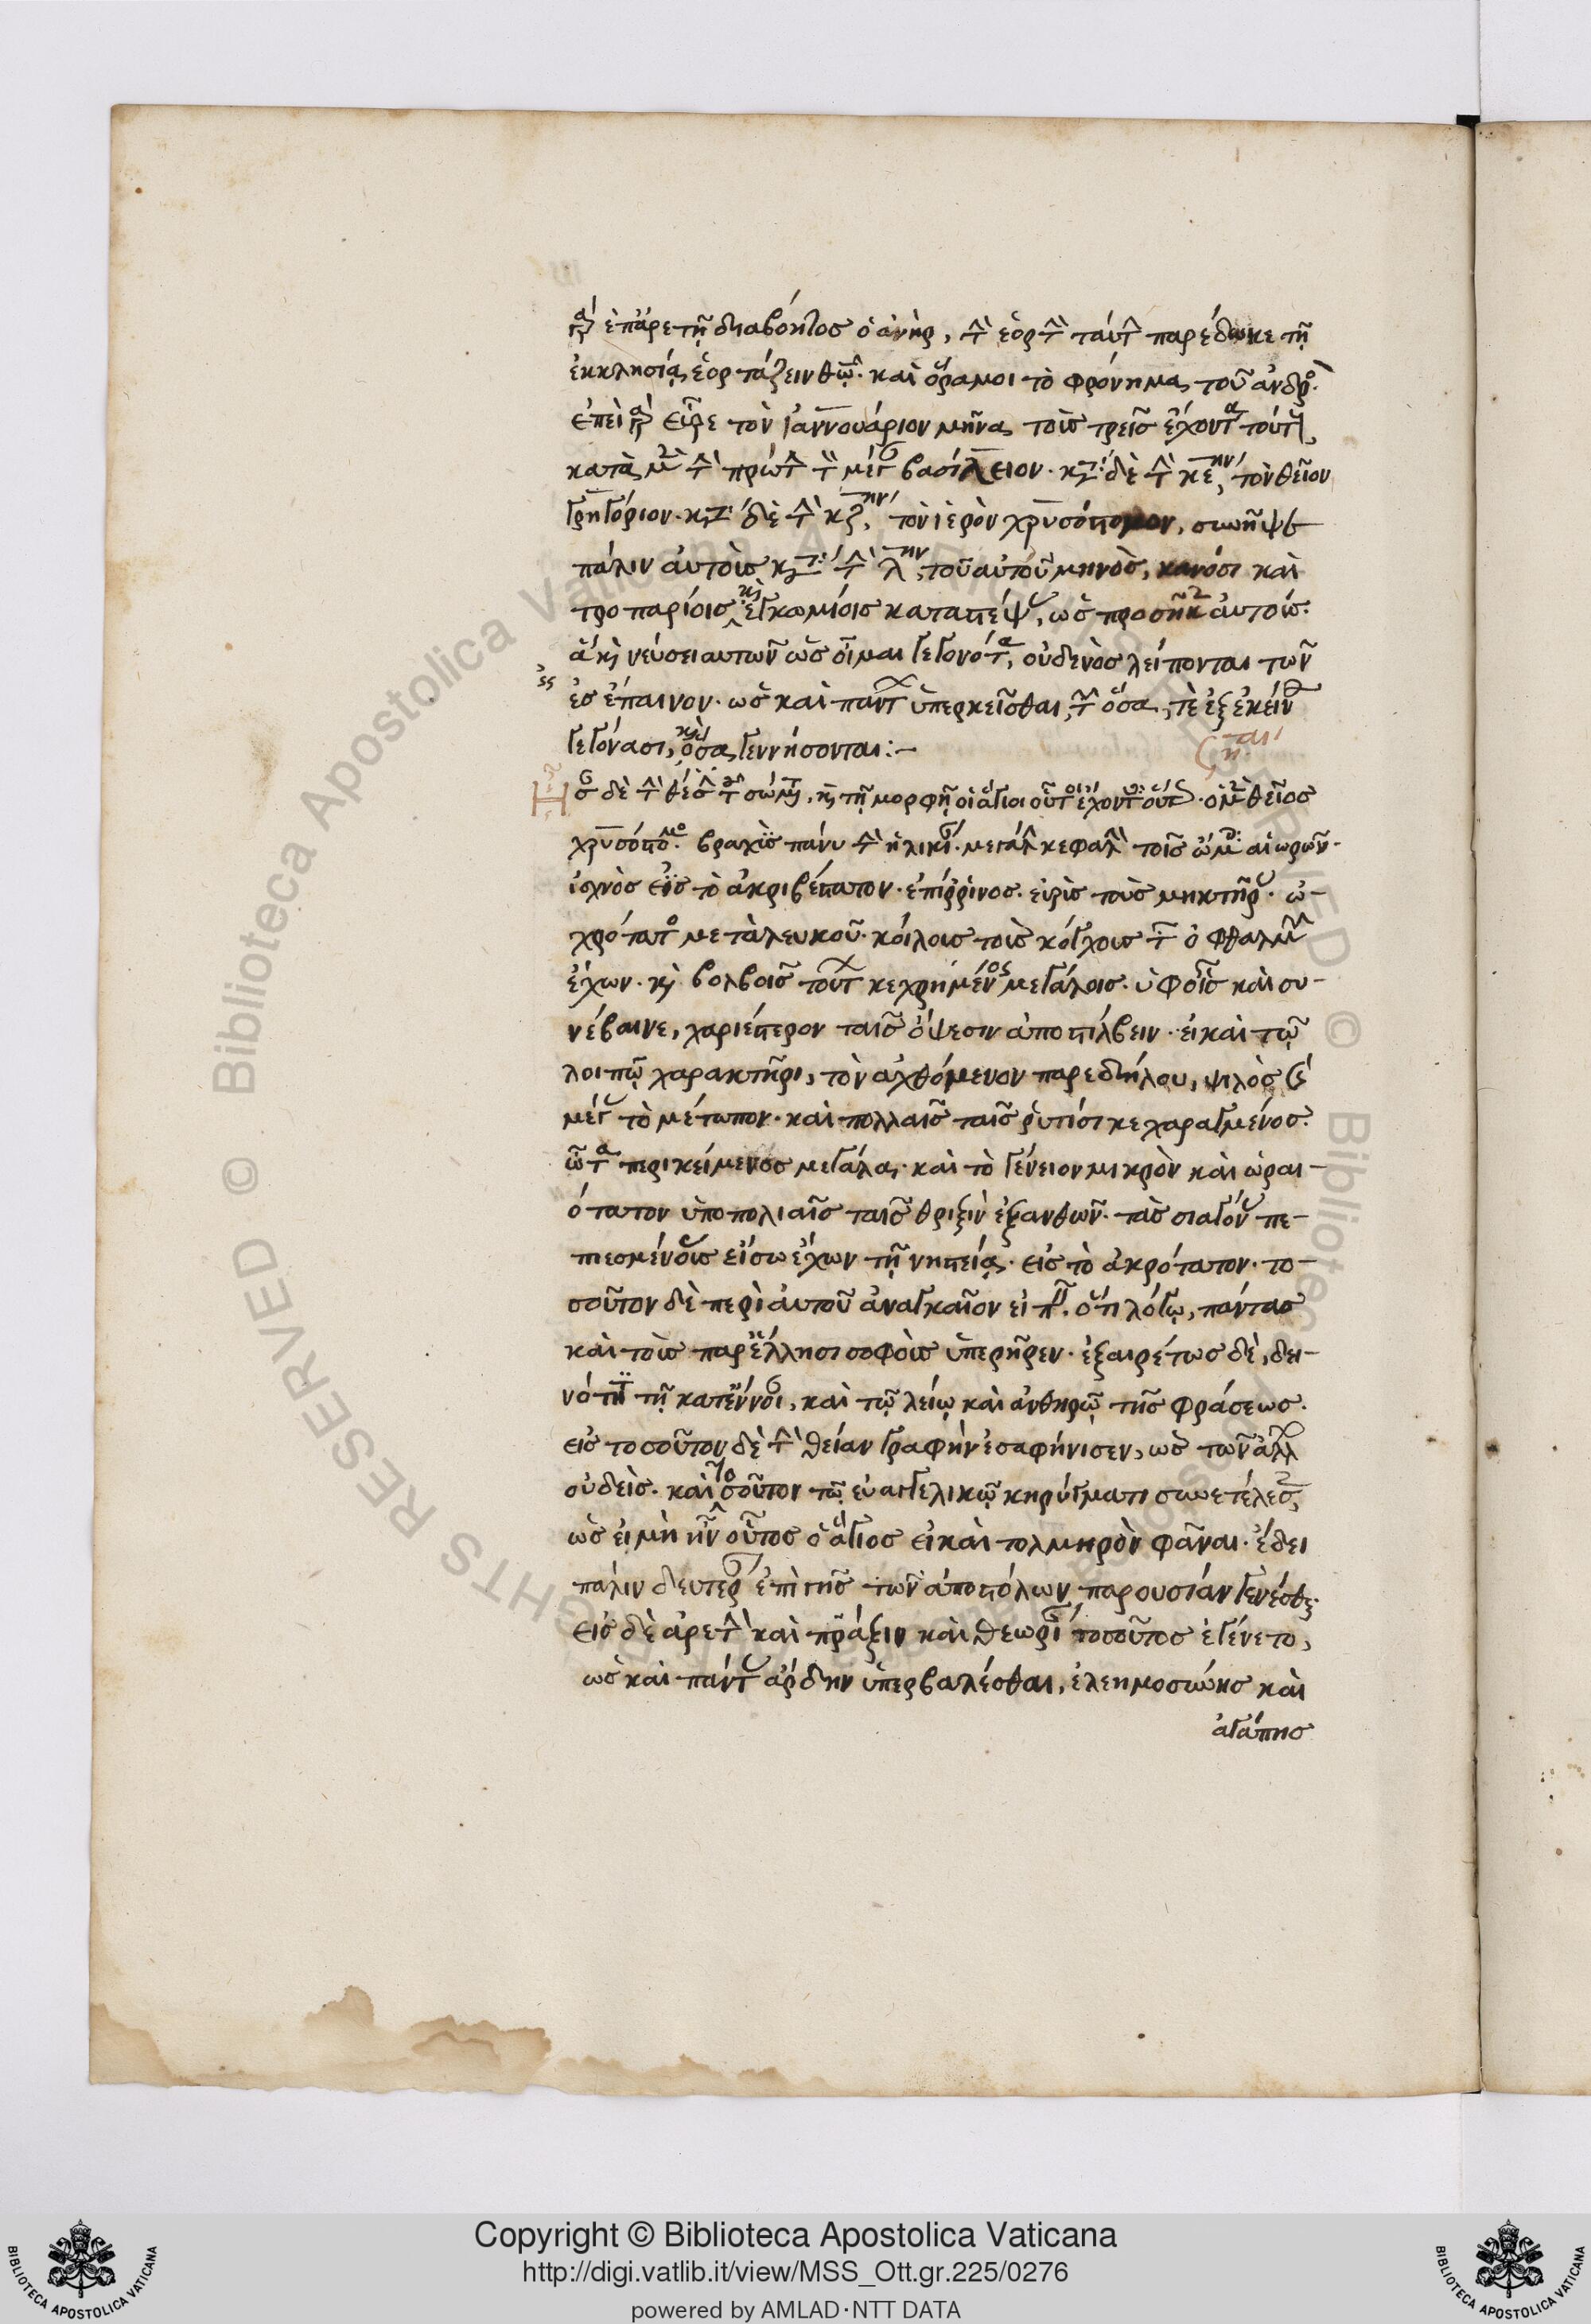 γὰρ ἐπ' ἀρετῇ διαβόητος ὁ ἀνὴρ, τὴν ἑορτὴν ταύτην παρέδωκε τῇ
ἐκκλησίᾳ ἑορτάζειν θεῷ. καὶ ὅρα μοι τὸ φρόνημα τοῦ ἀνδρὸς.
ἐπεὶ γὰρ εὗρε τὸν ἰαννουάριον μῆνα τοὺς τρεῖς ἔχοντα τούτους,
κατὰ μὲν τὴν πρώτην τὸν μέγαν βασίλειον. κατὰ δὲ τὴν κεην, τὸν θεῖον
γρηγόριον. κατὰ δὲ τὴν κζην, τὸν ἱερὸν χρυσόστομον, συνῆψε
πάλιν αὐτοὺς κατὰ τὴν λην τοῦ αὐτοῦ μηνὸς, κανόσι καὶ
τροπαρίοις καὶ ἐγκωμίοις καταστέψας, ὡς προσῆκεν αὐτοῖς.
ἃ καὶ νεύσει αὐτῶν ὡς οἶμαι γεγονότα, οὐδενὸς λείπονται τῶν
ἐς ἔπαινον. ὡς καὶ πάντων ὑπερκεῖσθαι, τῶν ὅσα τὲ ἐξ ἐκείνου
γεγόνασι, καὶ ὅσα γεννήσονται:-
Ἦσαν δὲ τὴν θέσιν τοῦ σώματος, καὶ τῇ μορφῇ οἱ ἅγιοι οὗτοι ἔχοντες οὕτως. ὁ μὲν θεῖος
χρυσόστομος. βραχὺς πάνυ τὴν ἡλικίαν. μεγάλην κεφαλὴν τοῖς ὤμοις αἰωρῶν.
ἰσχνὸς εἰς τὸ ἀκριβέστατον. ἐπίρρινος. εὐρὺς τοὺς μυκτῆρας. ὠ-
χρότατος μετὰ λευκοῦ. κοίλους τοὺς κόγχους τῶν ὀφθαλμῶν
ἔχων. καὶ βολβοῖς τούτων κεχρημένος μεγάλοις. ὑφ' οἷς καὶ συ-
νέβαινε, χαριέστερον ταῖς ὄψεσιν ἀποστίλβειν. εἰ καὶ τῷ
λοιπῷ χαρακτῆρι, τὸν ἀχθόμενον παρεδήλου, ψιλὸς καὶ
μέγας τὸ μέτωπον. καὶ πολλαῖς ταῖς ῥυτίσι κεχαραγμένος.
ὦτα περικείμενος μεγάλα. καὶ τὸ γένειον μικρὸν καὶ ὡραι-
ότατον ὑποπολιαῖς ταῖς θριξὶν ἐξανθῶν. τὰς σιαγόνας πε-
πιεσμένας εἴσω ἔχων τῇ νηστείᾳ. εἰς τὸ ἀκρότατον. το-
σοῦτον δὲ περὶ αὐτοῦ ἀναγκαῖον εἰπεῖν. ὅτι λόγῳ, πάντας
καὶ τοὺς παρ' ἕλλησι σοφοὺς ὑπερῆρεν. ἐξαιρέτως δὲ, δει-
νότητι τῇ κατ' ἔννοιαν, καὶ τῷ λείῳ καὶ ἀνθηρῷ τῆς φράσεως.
εἰς τοσοῦτον δὲ τὴν θείαν γραφὴν ἐσαφήνισεν, ὡς τῶν ἄλλων
οὐδεὶς. καὶ τοσοῦτον τῷ εὐαγγελικῷ κηρύγματι συνετέλεσεν,
ὡς εἰ μὴ ἦν οὗτος ὁ ἅγιος εἰ καὶ τολμηρὸν φᾶναι. ἔδει
πάλιν δευτέραν ἐπὶ γῆς τῶν ἀποστόλων παρουσίαν γενέσθαι.
εἰς δὲ ἀρετὴν καὶ πρᾶξιν καὶ θεωρίαν τοσοῦτος ἐγένετο,
ὡς καὶ πάντας ἄρδην ὑπερβαλέσθαι, ἐλεημοσύνης καὶ
ἀγάπης